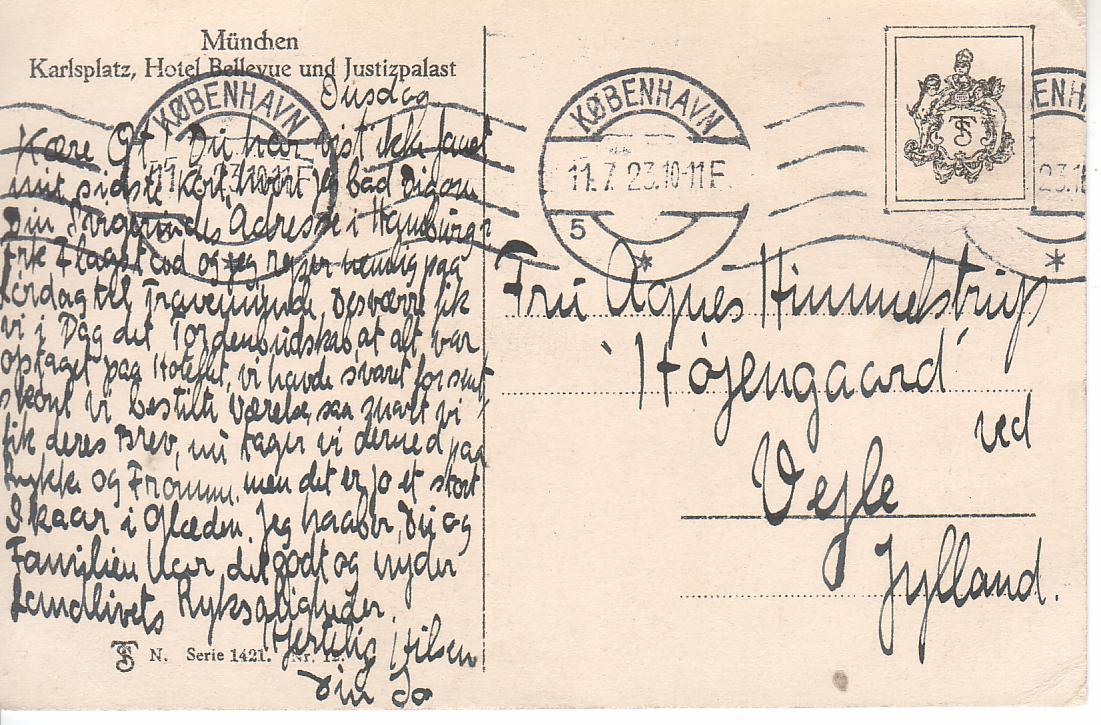 München
Karlsplatz, Hotel Bellevue und Justizpalast
Onsdag
Kære Du har vist ikke faaet
mit sidste Kort hvori jeg bad Dig om
Din Adresse i Hamburg
Frk Flagstad og jeg rejser nemlig paa
Lørdag til Travemünde, desværre fik
vi i Dag det Tordenbudskab, at alt var
optaget paa Hotellet, vi havde svaret for sent,
skønt vi bestilte Værelse, saa snart vi
fik deres Brev, nu tager vi derned paa
Lykke og Fromme, men det er jo et stort
Skaar i Glæden. Jeg haaber, Du og
Familien har det godt og nyder
Landlivets Lyksaligheder.
Hjertelig Hilsen
Din
TS N. Serie 1421. Nr. 12.
KØBENHAVN
11.7.23.10-11F.
5
KØBENHAVN
11.7 23.10-11F.
5
ENH
23.1
TS
Fru Agnes Himmelstrup
'Højengaard'
ved
Vejle
Jylland.